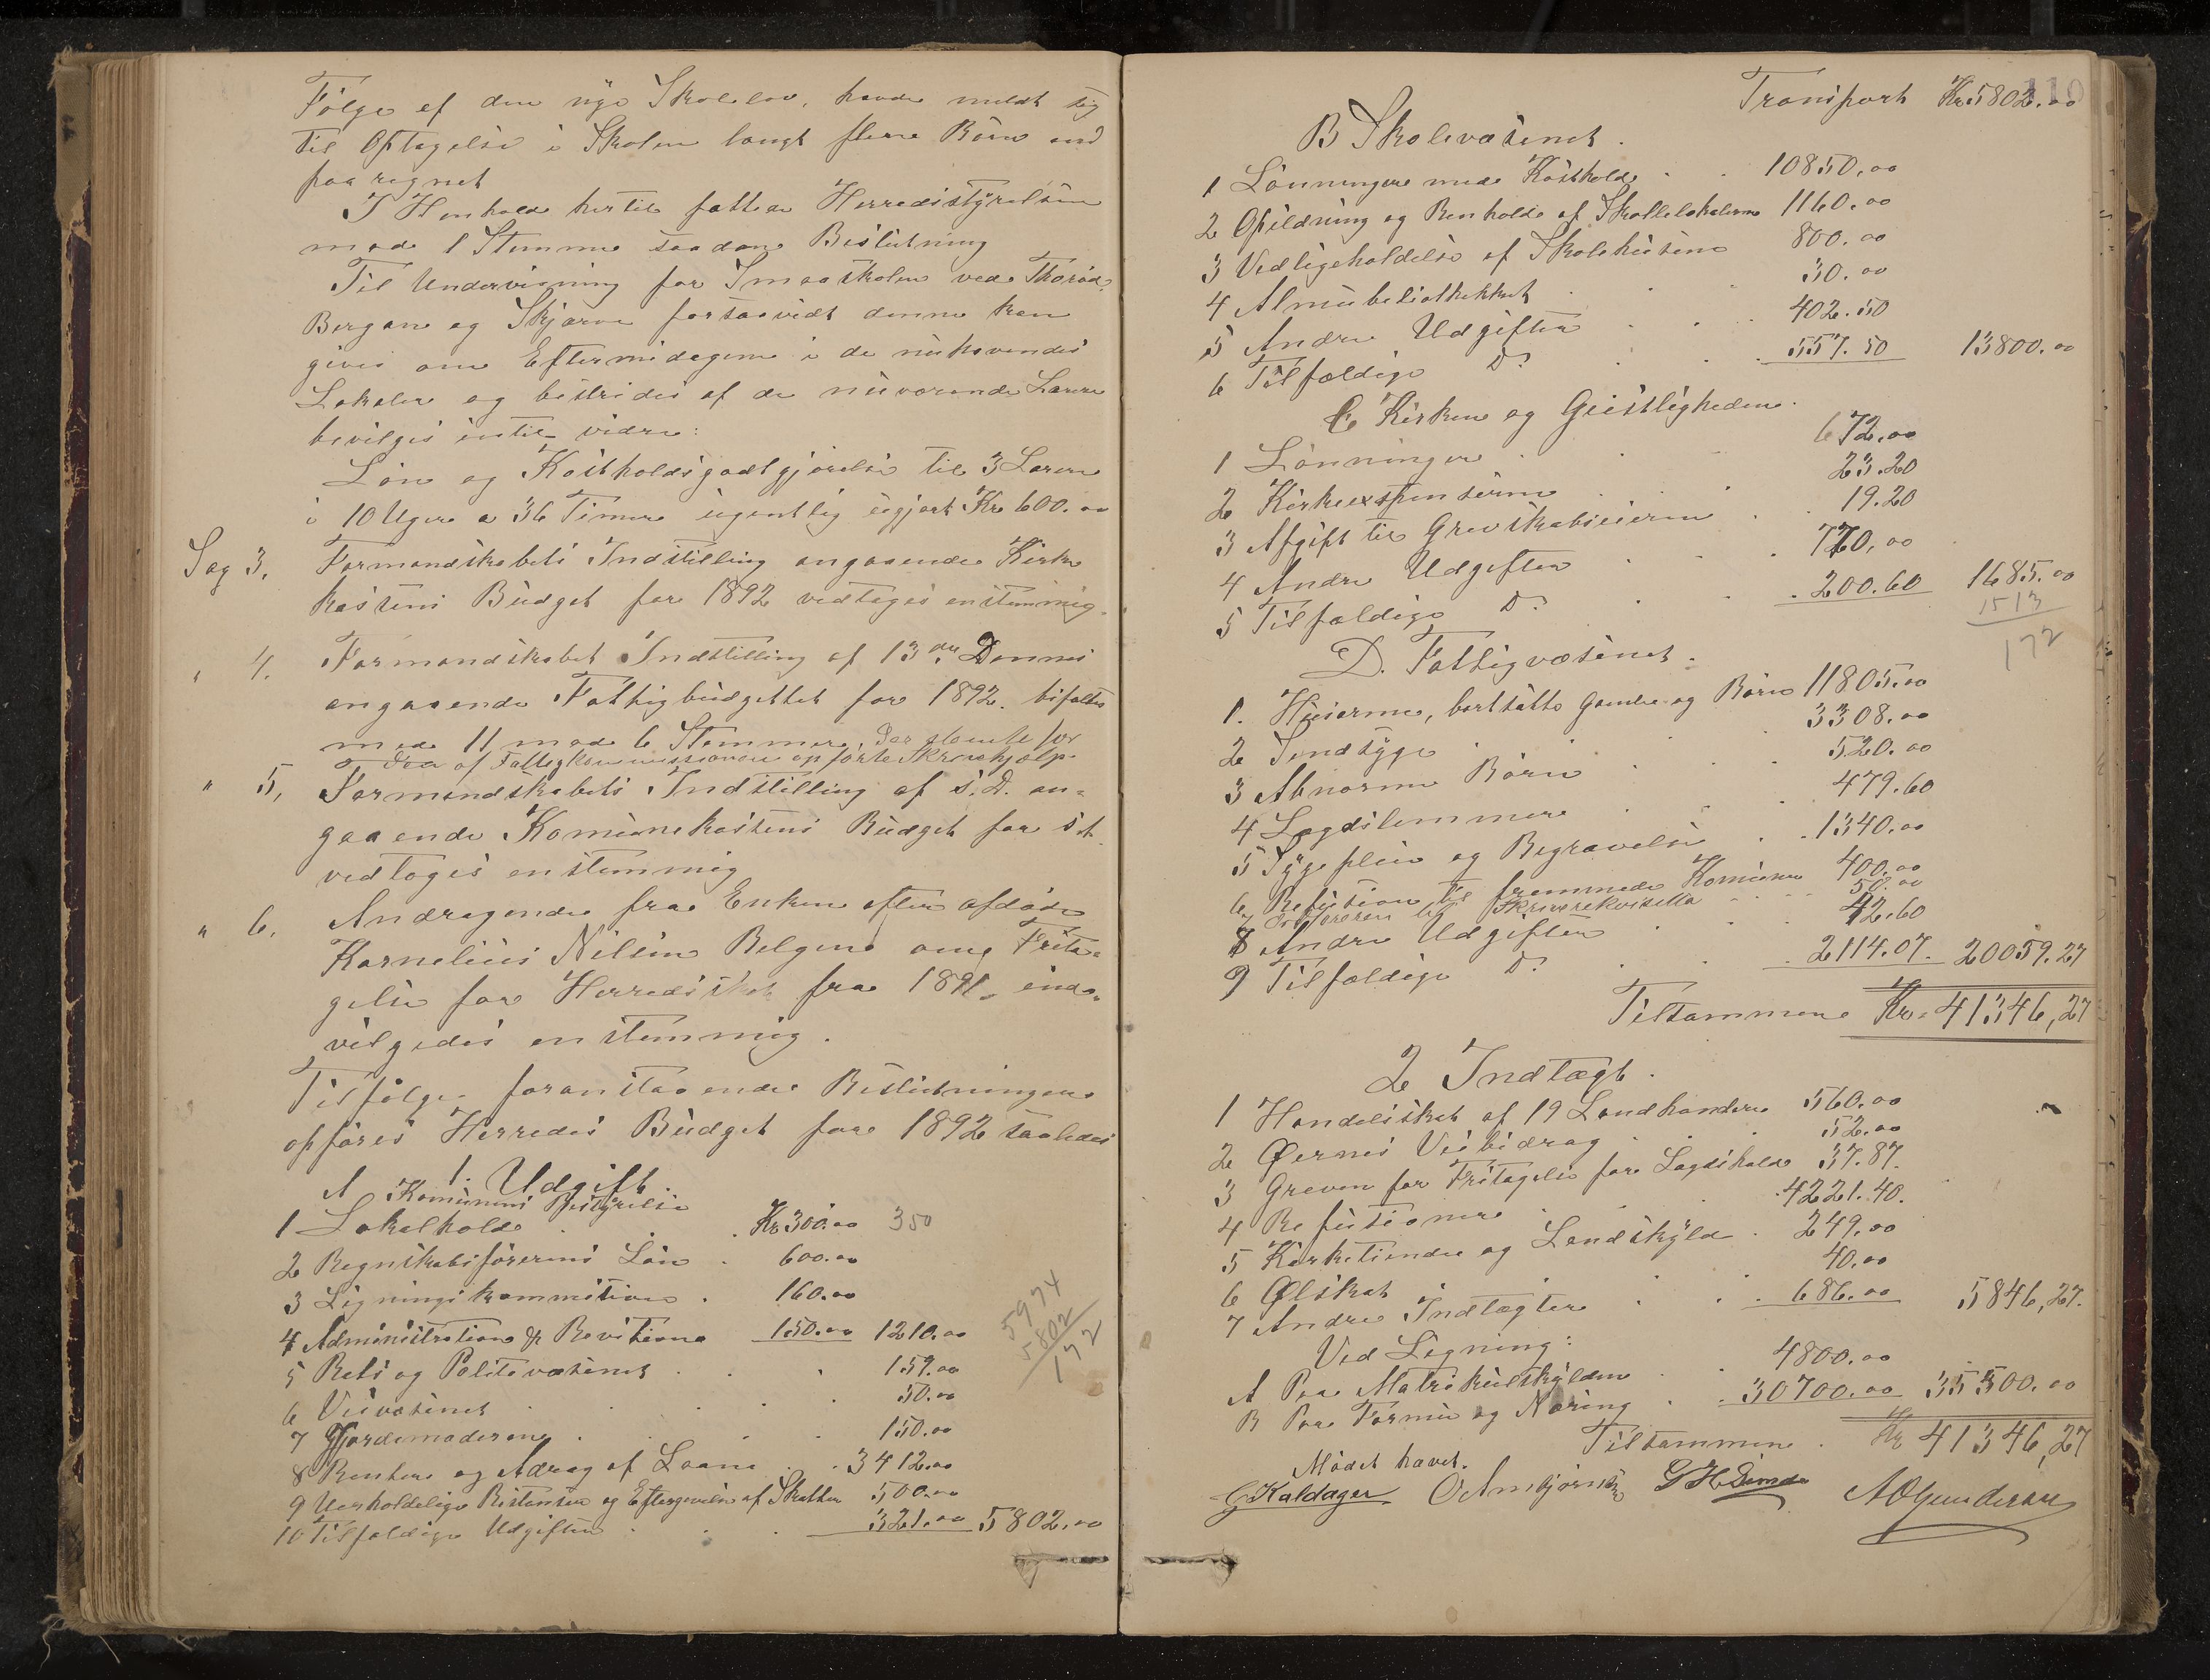 Følge af den nye Skolelov, havde meldt sig
til Optagelse i Skolen langt flere Børn end
paaregnet
I Henhold hertil fattede Herredsstyrelsen
mod 1 Stemme saadan Beslutning
Til Undervisning for Smaaskolen ved Thorød,
Bergan og Skjærve forsaavidt denne kan
gives om Eftermidagene i de nuhavendes
Lokaler og bestrides af de nuværende Lærere
bevilges indtil vidre:
Løn og Kostholdsgodtgjørelse til 3 Lærere
i 10 Uger a 36 Timer ugentlig ugjort Kr 600.00
Sag 3, Formandskabets Indstilling angaaende Kirke
kassens Budget for 1892 vedtoges enstemmig.
" 4. Formandskabet Indstilling af 13de Dennes
angaaende Fattigbudgettet for 1892. bifaldtes
med 11 mod 6 Stemmer, der stemte for
den af Fattigkommissionen opførte Skrivehjælp.
" 5, Formandskabets Indstilling af s. D. an=
gaaende Komunekassens Budget for s. A.
vedtoges enstemmig
" 6. Andragende fra Enken efter afdøde
Kornelius Nilsen Belgen om Frita=
gelse for Herredsskat for 1891 ind=
vilgedes enstemmig.
Tilfølge foranstaaende Beslutninger
opføres Herredes Budget for 1892 saaledes
1. Udgift.
A Komunens Bestyrelse
1 Lokalhold . . Kr 300.00 350
2 Regnskabsførerens Løn . 600.00
3 Ligningskommission . 160.00
4 Administration & Revisione 150.00 1210.00
5974
5802
172
5 Rets og Politivæsenet . . . 159.00
6 Veivæsenet . . . . 50.00
7 Gjordemoderen . . . 150.00
8 Renter og Adrag af Laane . . 3412.00
9 Uerholdelige Ristanser og Eftergivelse af Skatter 500.00
10 Tilfældige Udgifter . . . 321.00 5802.00
110
Transport Kr 5802.00
B Skolevæsenet.
1 Lønninger med Kosthold . . 10850.00
2 Opildning og Renhold af Skollelokalerne 1160.00
3 Vedligeholdelse af Skolehusene 800.00
4 Almubeliothekket . . . 30.00
5 Andre Udgifter . . . 402.50
6 Tilfældige Do . . . 557.50 13800.00
C Kirken og Geistligheden.
1 Lønninger . . 672.00
2 Kirkeexspenserne . . . 23.20
3 Afgift til Grevskabseieren . . 19.20
4 Andre Udgifter . . . 770.00
5 Tilfældige Do . . . 200.60 1685.00
1513
172
D. Fattigvæsenet.
1. Husarme, bortsatte Gamle og Børn 11805.00
2 Sindsyge . . . 3308.00
3 Abnorme Børn . . . 520.00
4 Lægdslemmer . . . 479.60
5 Sygepleie og Begravelse . . 1340.00
6 Refusion til fremmede Komuner 400.00
7 Ordføreren til Skriverekvisita . . . 50.00
8 Andre Udgifter . . . 42.60
9 Tilfældige Do . . . 2114.07. 20059.27
Tilsammen Kr. 41346,27
2 Indtægt.
1 Handelsskat af 19 Landhandlere 560.00
2 Øernes Veibidrag . . 52.00
3 Greven for Fritagelse for Lægdshold 37.87.
4 Refusioner . . . 4221.40.
5 Kirketiende og Landskyld . 249.00
6 Ølskat . . . 40.00
7 Andre Indtægter . . . 686.00 5846,27.
Ved Ligning:
A Paa Matrikulskylden . 4800.00
B Paa Formue og Næring . . 30700.00 35500.00
Tilsammen . Kr 41346,27
Mødet hævet.
G Kaldager
A O Gundersen